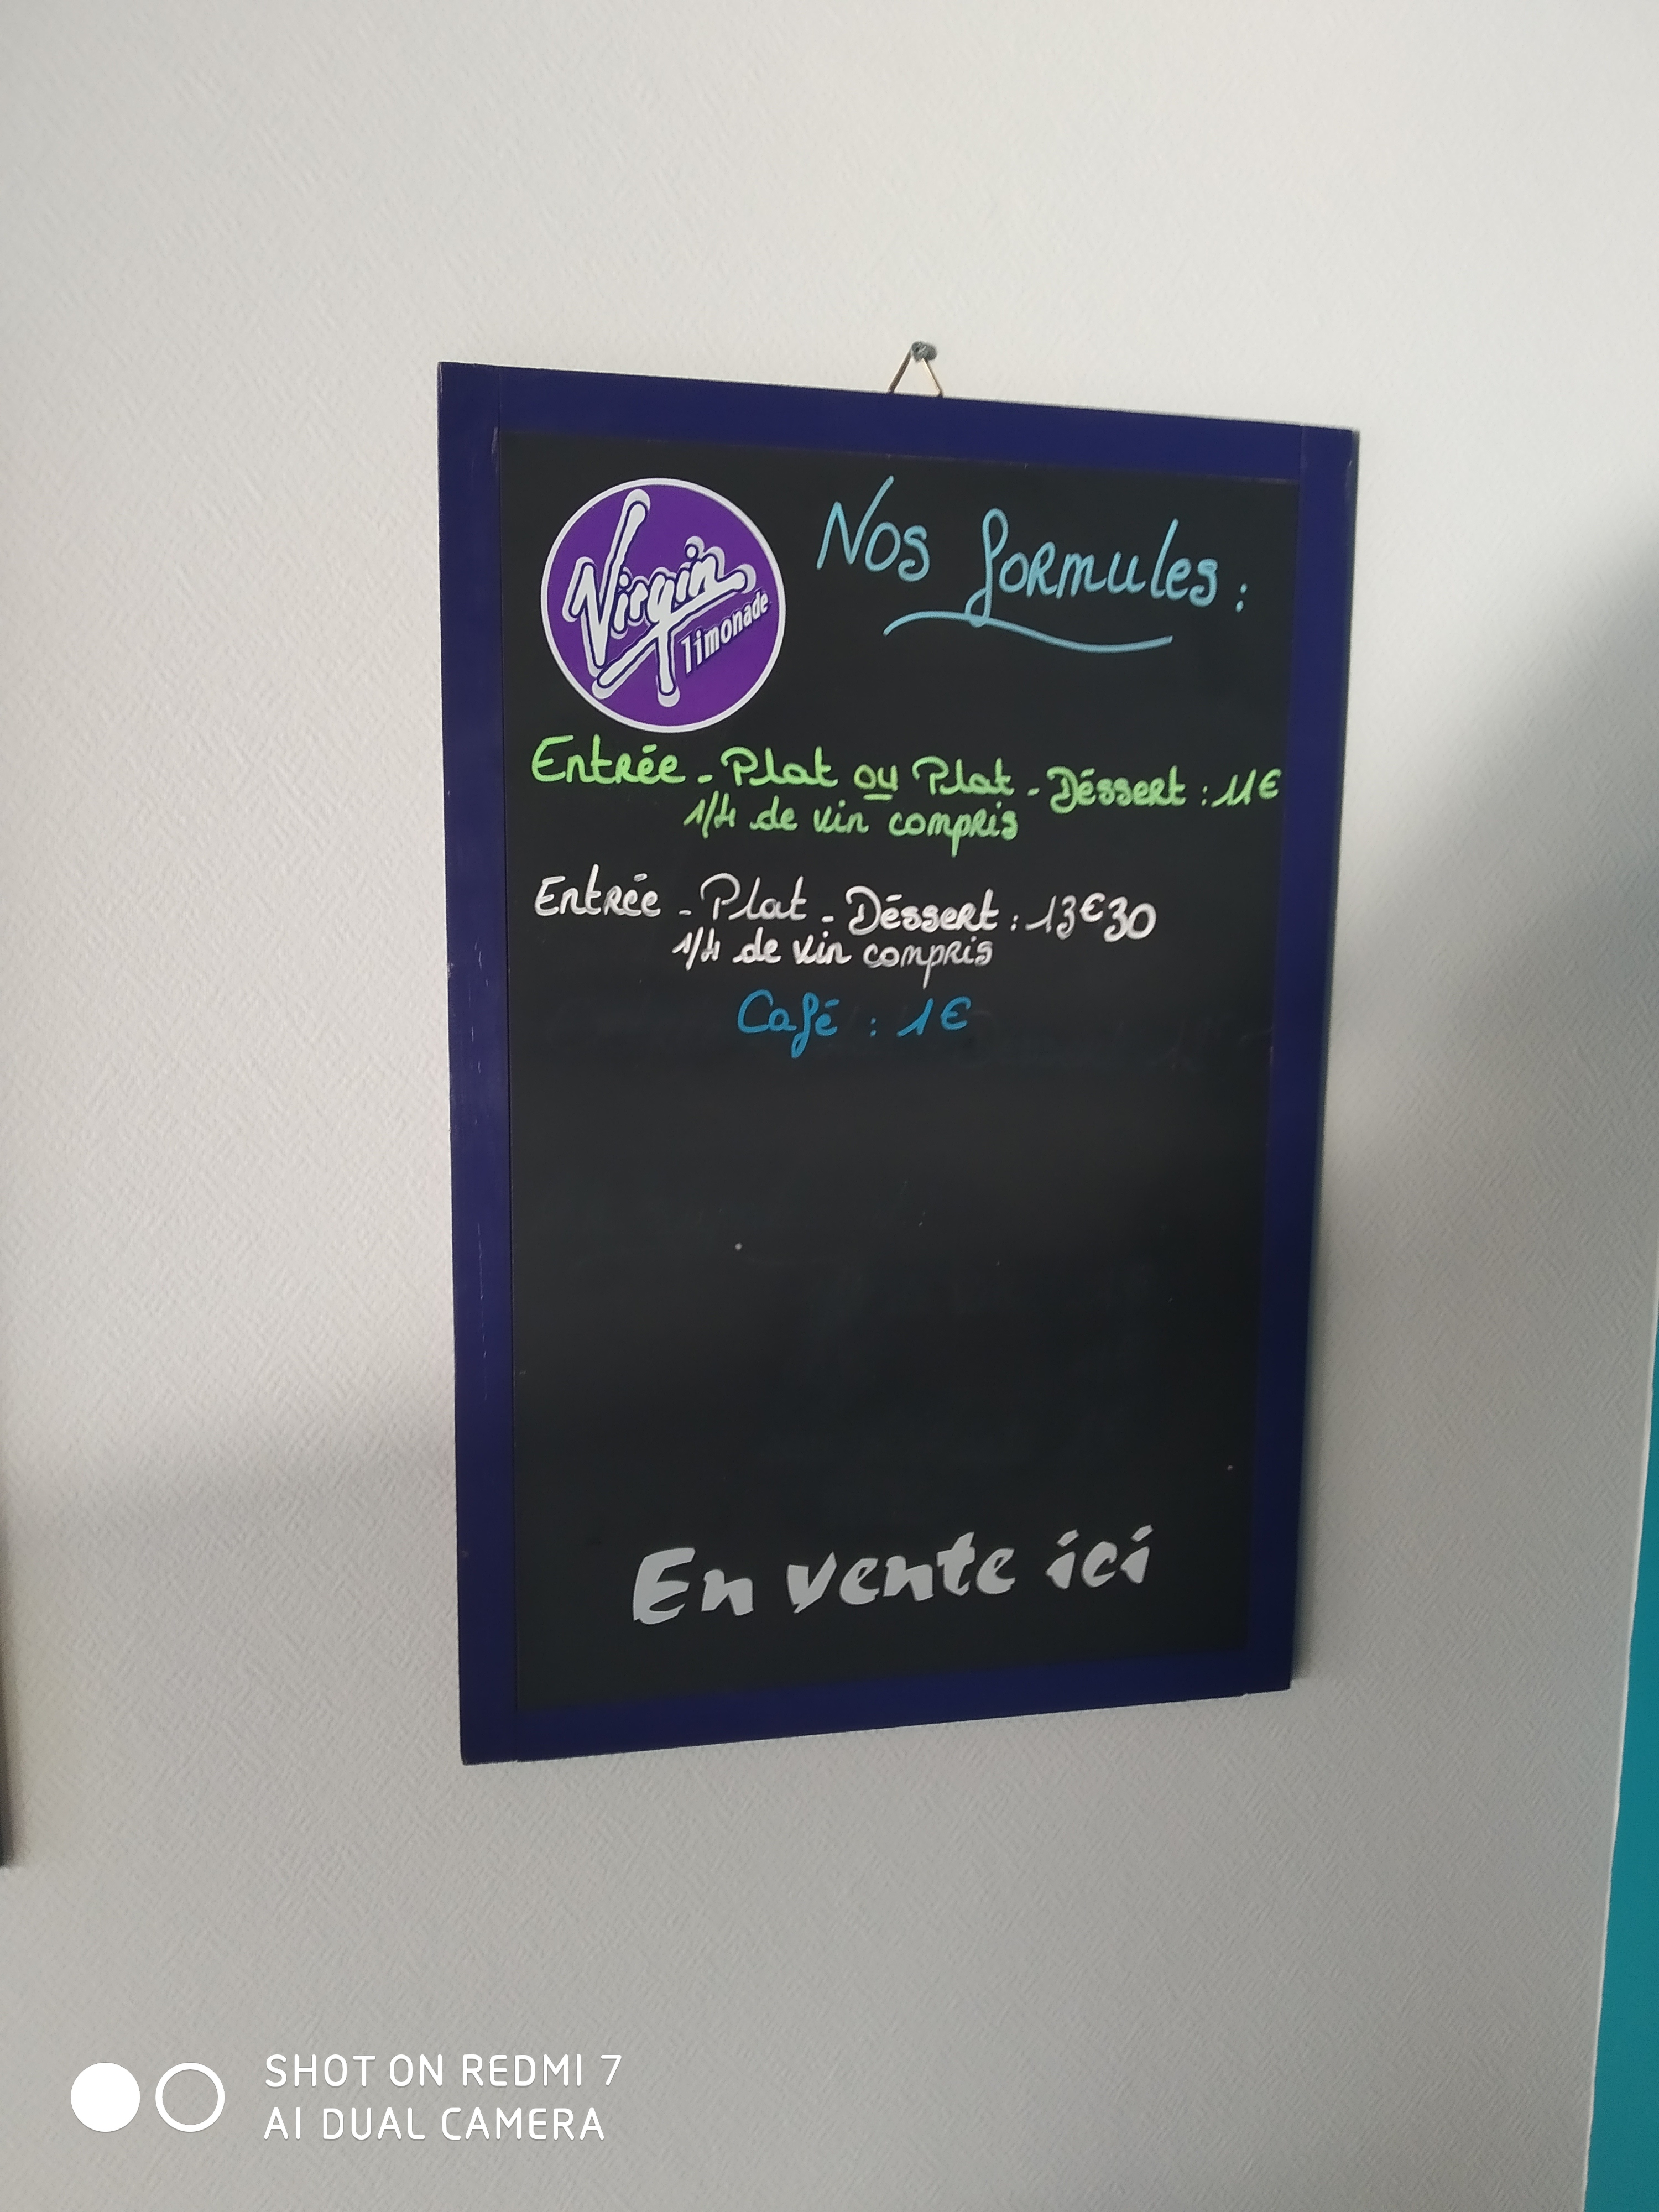 Virgin
limonade
Nos formules :
Entrée - Plat ou Plat - Déssert : 11€
1/4 de vin compris
Entrée - Plat - Déssert : 13€30
1/4 de vin compris
Café : 1€
En vente ici
SHOT ON REDMI 7
AI DUAL CAMERA